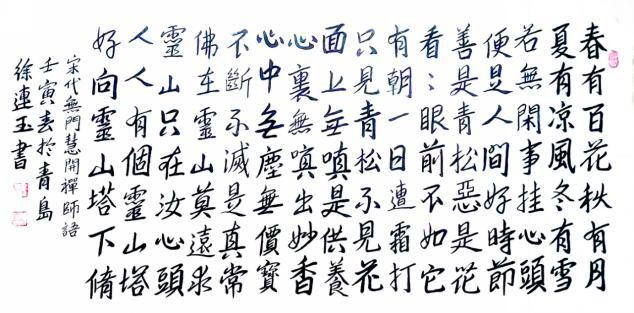 春有百花秋有月
夏有凉風冬有雪
若無閑事挂心頭
便是人間好時節
善是青松惡是花
看〻眼前不如它
有朝一日遭霜打
只見青松不見花
面上无嗔是供養
心裏無嗔出妙香
心中无塵無價寶
不斷不滅是真常
佛在靈山莫遠求
靈山只在汝心頭
人人有個靈山塔
好向靈山塔下脩
宋代無門慧開禪師語
壬寅春於青島
徐連玉書